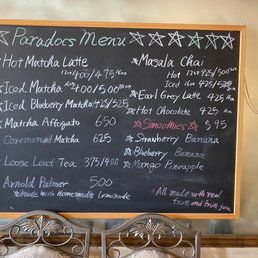 Paradocs Menu
Hot Matcha Latte
12oz 400/475 16oz
Iced Matcha 400/500
Iced Blueberry Matcha 425/525
Matcha Affogato 650
Ceremonial Matcha 625
Loose Leaf Tea 375/400
Arnold Palmer 500
Made with Homemade Lemonade
Masala Chai
Hot 12oz 425/500 16oz
Iced 425/
Earl Grey Latte 425
Hot Chocolate 425
Smoothies 595
Strawberry Banana
Blueberry Banana
Mango Pineapple
All made with real
fruit and fruit juice